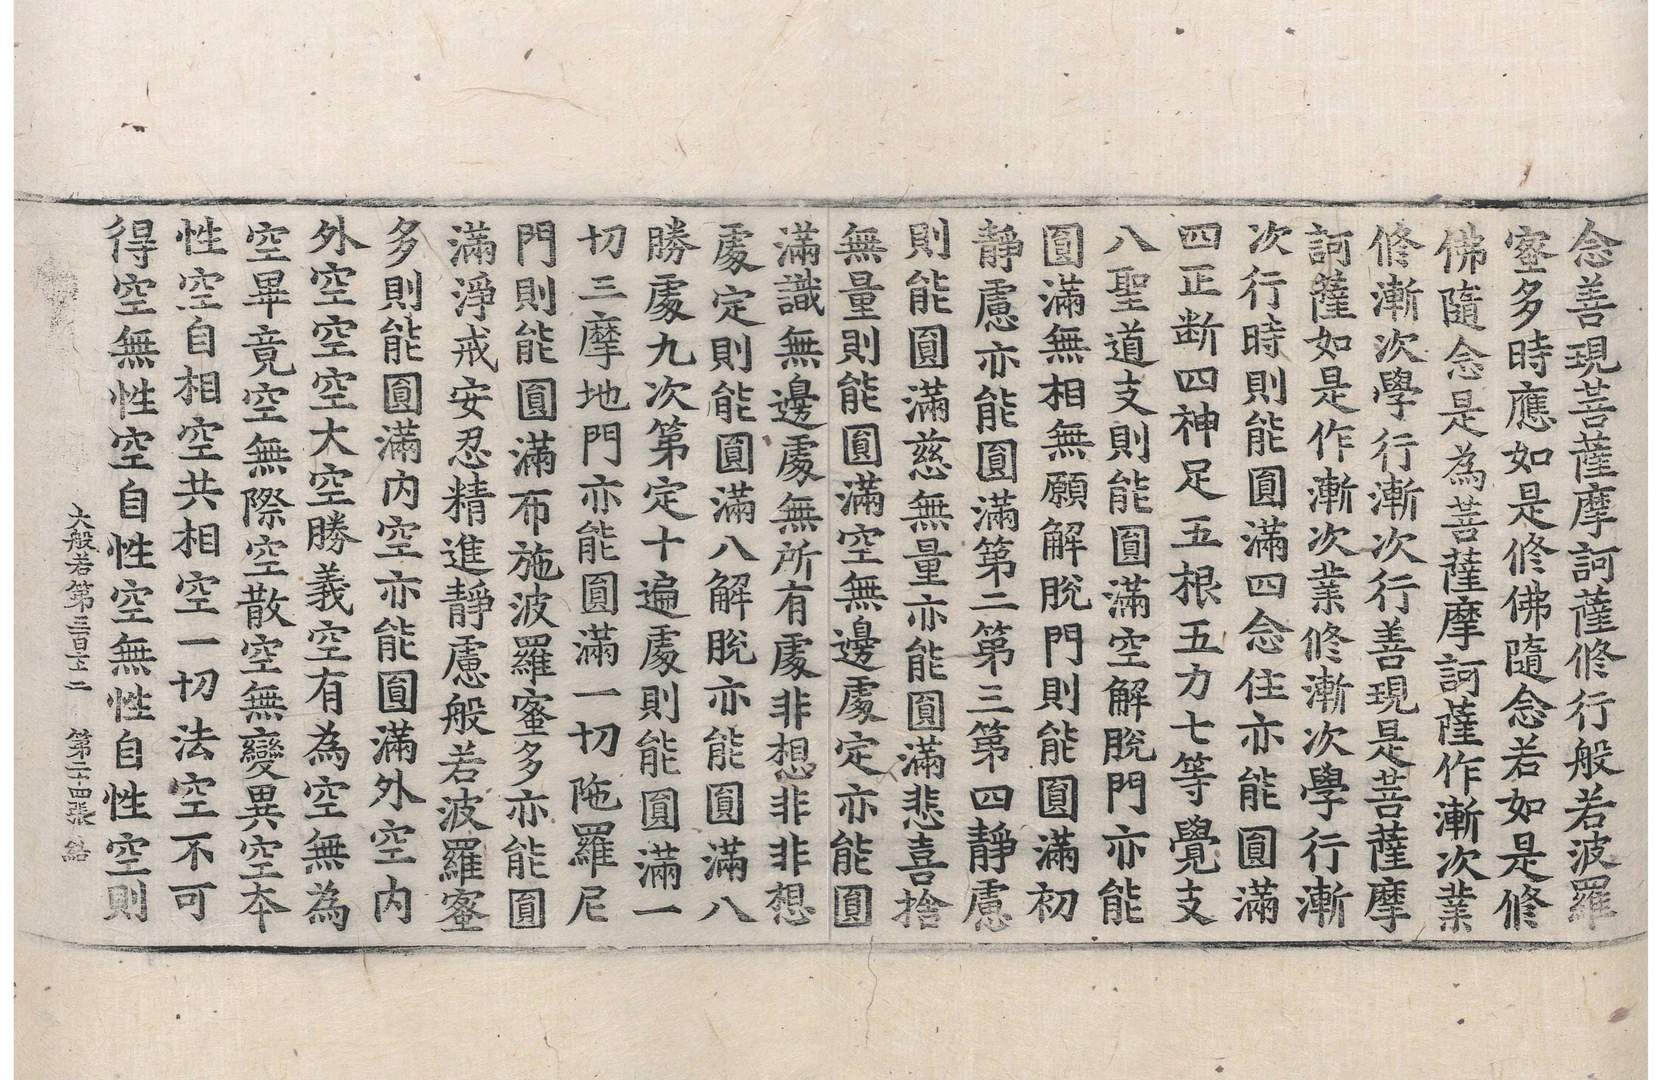 念善現菩薩摩訶薩修行般若波羅
蜜多時應如是修佛隨念若如是修
佛隨念是為菩薩摩訶薩作漸次業
修漸次學行漸次行善現是菩薩摩
訶薩如是作漸次業修漸次學行漸
次行時則能圓滿四念住亦能圓滿
四正断四神足五根五力七等覺支
八聖道支則能圓滿空解脫門亦能
圓滿無相無願解脫門則能圓滿初
靜慮亦能圓滿第二第三第四靜慮
則能圓滿慈無量亦能圓滿悲喜捨
無量則能圓滿空無邊處定亦能圓
滿識無邊處無所有處非想非非想
處定則能圓滿八解脫亦能圓滿八
勝處九次第定十遍處則能圓滿一
切三摩地門亦能圓滿一切陁羅尼
門則能圓滿布施波羅蜜多亦能圓
滿淨戒安忍精進靜慮般若波羅蜜
多則能圓滿內空亦能圓滿外空內
外空空空大空勝義空有為空無為
空畢竟空無際空散空無變異空本
性空自相空共相空一切法空不可
得空無性空自性空無性自性空則
大般若第三百七十二 第二十四張 結